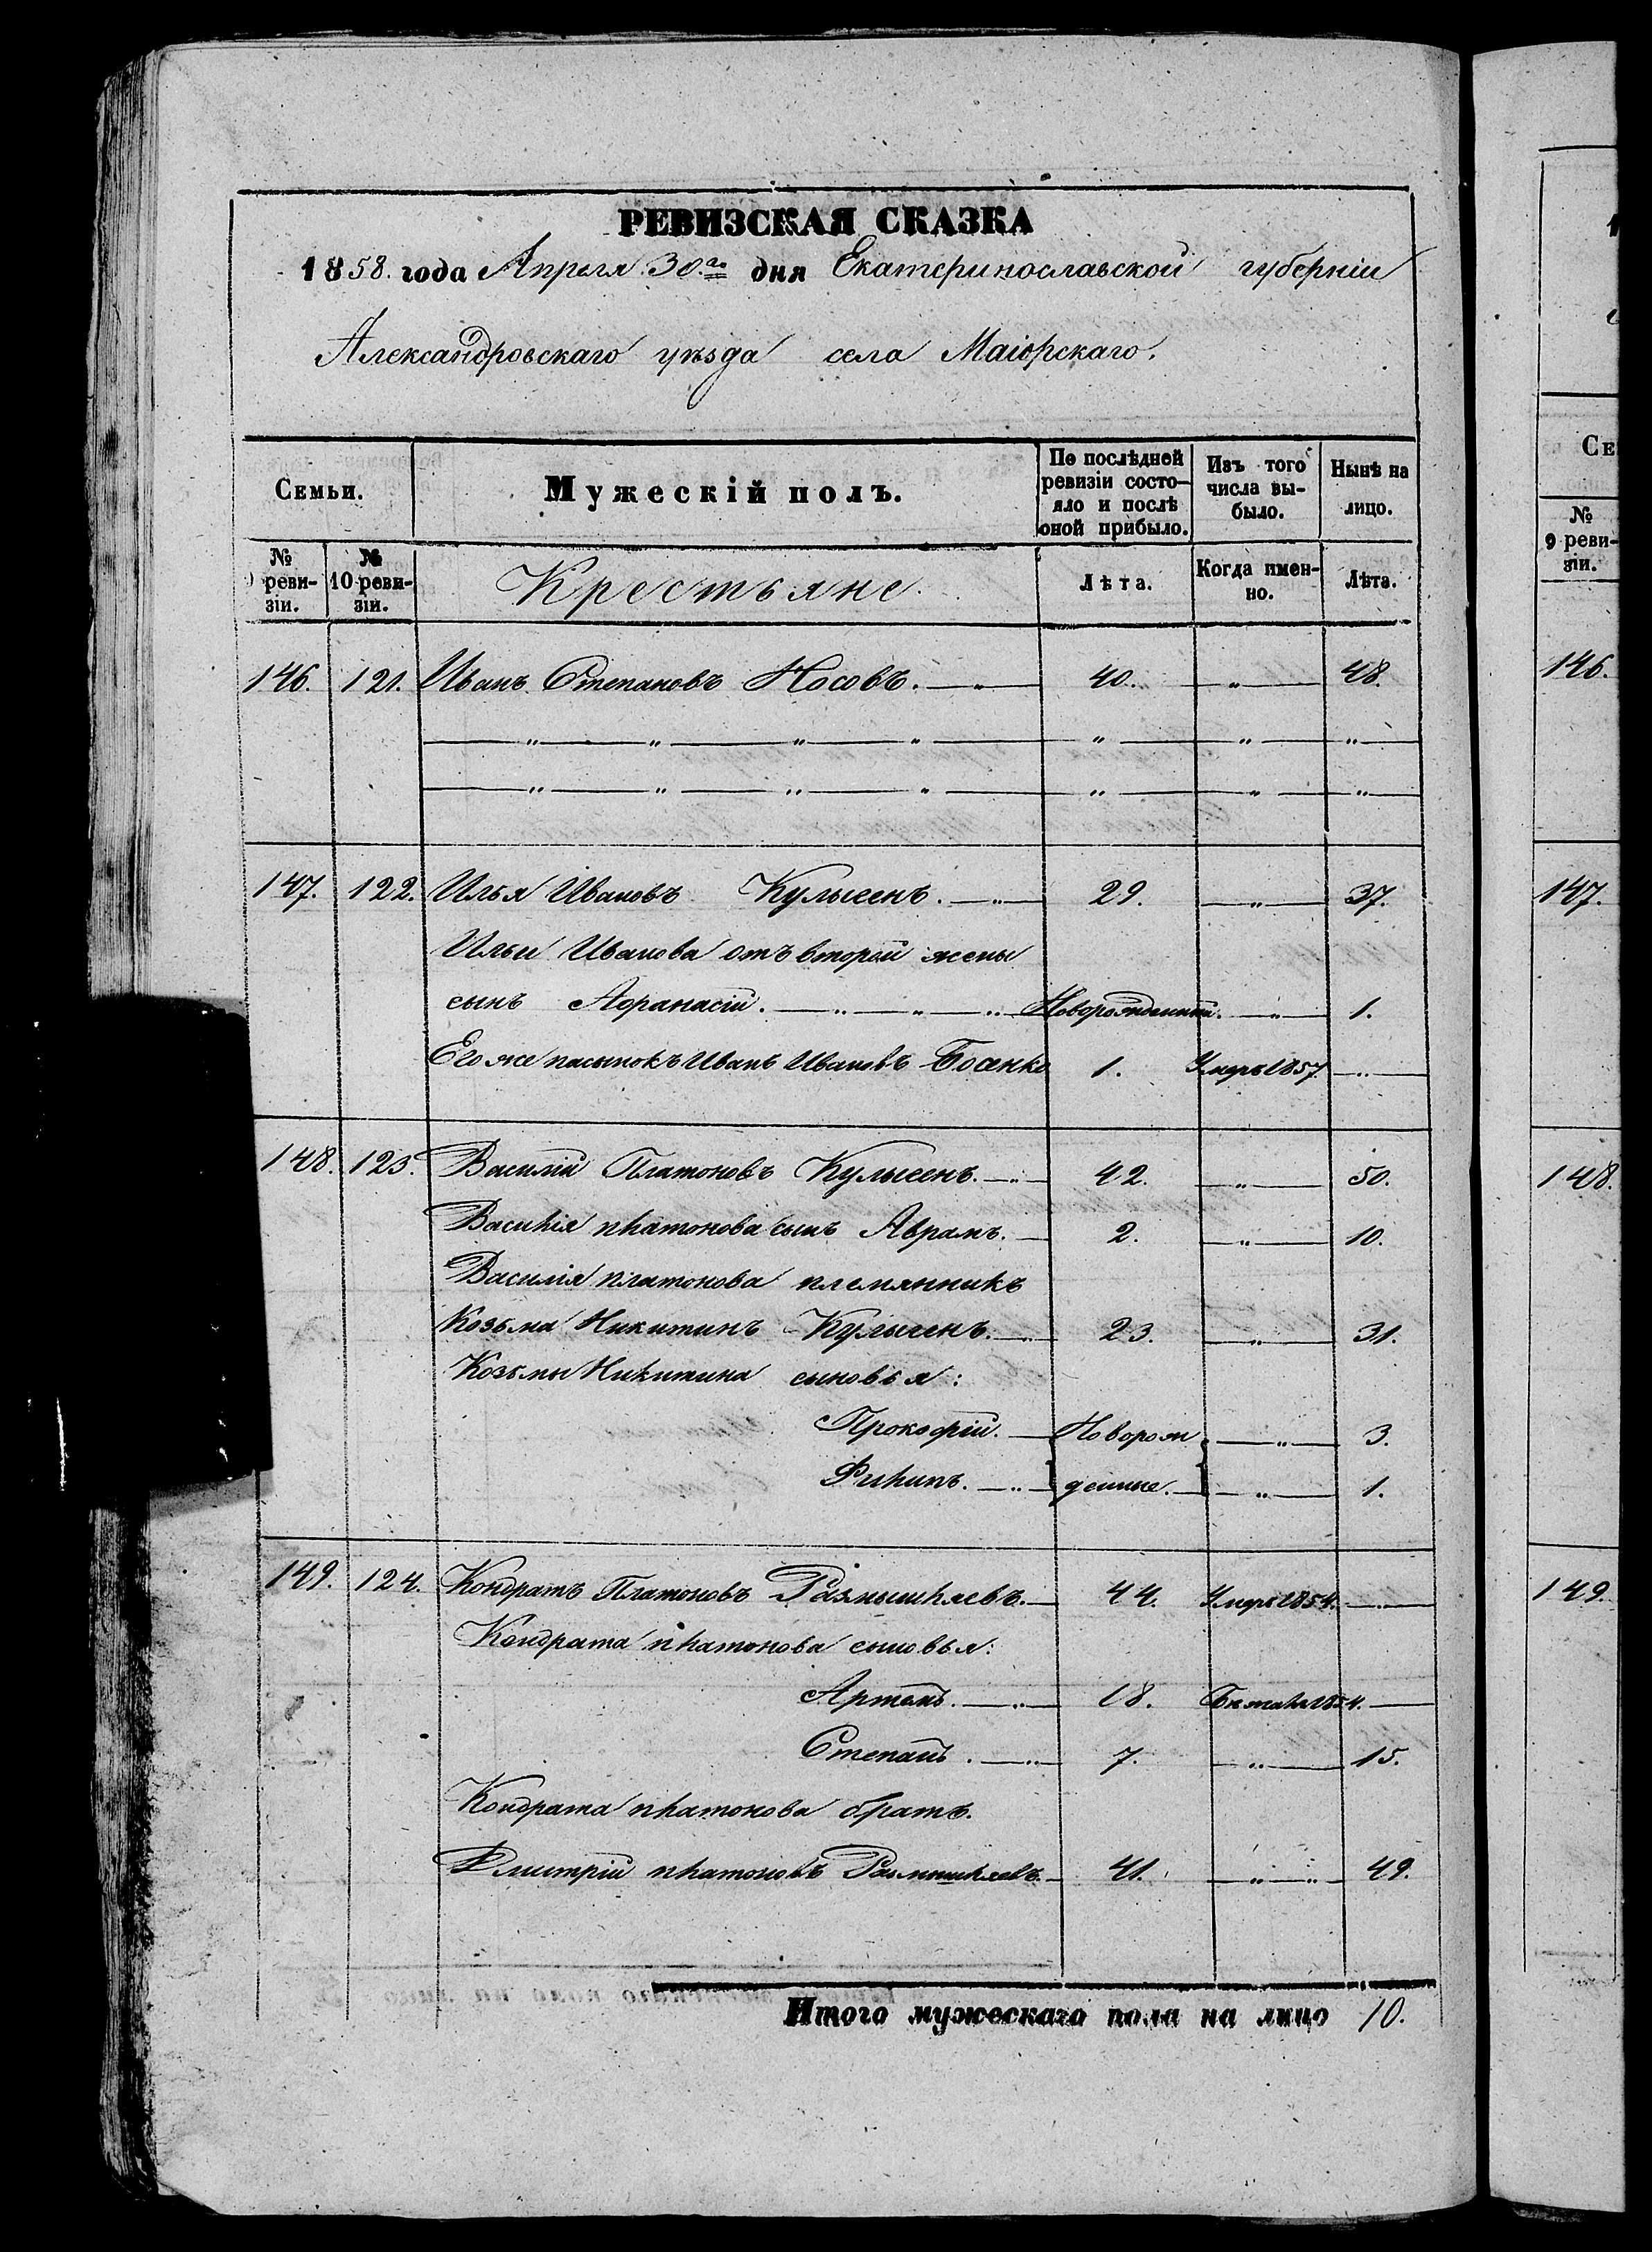 РЕВИЗСКАЯ СКАЗКА
1858. года Апрѣля 30го дня Екатеринославской губерніи
Александровскаго уѣзда села Маіорскаго.
Семьи.
Мужескій полъ.
По послѣдней ревизіи состояло и послѣ оной прибыло.
Изъ того числа выбыло.
Нынѣ на лицо.
№ 9 ревизіи.
№ 10 ревизіи.
Крестьяне.
Лѣта.
Когда именно.
Лѣта.
146. 121. Иванъ Степановъ Носовъ. — „ — 40. — „ — 48.
147. 122. Илья Ивановъ Кулыгенъ. — „ — 29. — „ — 37.
Ильи Иванова отъ второй жены
сынъ Афанасій. — „ — „ — „ — Новорожденный. — „ — 1.
Его же пасынокъ Иванъ Ивановъ Босенко 1. Умеръ 1857. — „ —
148. 123. Василій Платоновъ Кулыгенъ. — „ — 42. — „ — 50.
Василія Платонова сынъ Аврамъ. — 2. — „ — 10.
Василія Платонова племянникъ
Козьма Никитинъ Кулыгенъ. — „ 23. — „ — 31.
Козьмы Никитина сыновья:
Прокофій. — Новорож — „ — 3.
Филипъ. — „ — денные. — „ — 1.
149. 124. Кондратъ Платоновъ Размышляевъ. — 44. Умеръ 1854. — „ —
Кондрата Платонова сыновья:
Артемъ. — „ — 18. Бежалъ 1854. —
Степанъ. — „ — 7. — „ — 15.
Кондрата Платонова братъ.
Дмитрій Платоновъ Размышляевъ. — 41. — „ — „ — 49.
Итого мужескаго пола на лицо 10.
Се
№ 9 ревизіи.
146.
147.
148.
149.